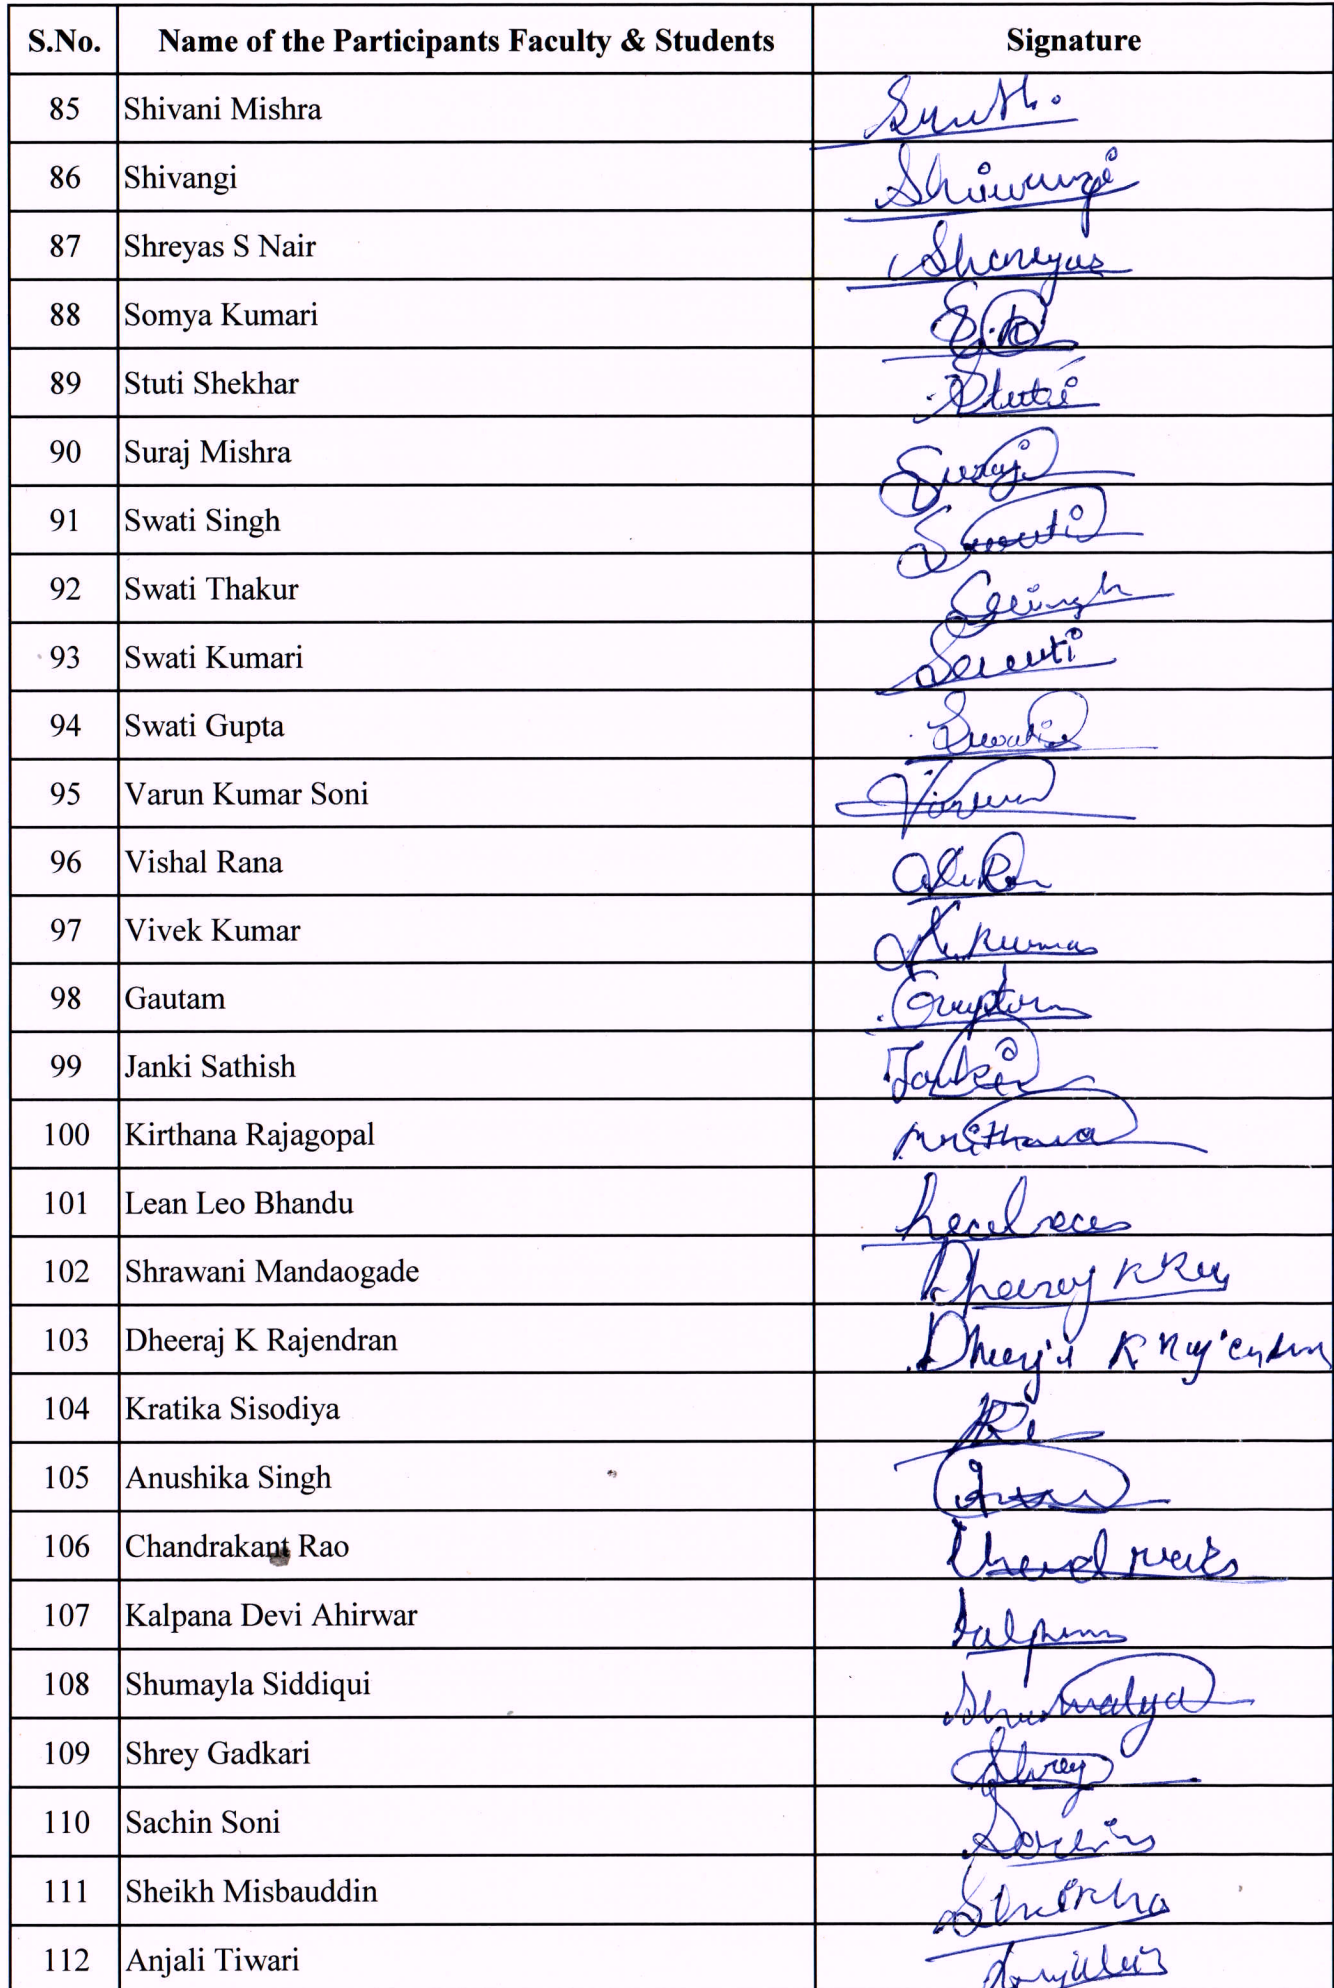 S.No. Name of the Participants Faculty & Students Signature
85 Shivani Mishra
86 Shivangi Shivangi
87 Shreyas S Nair Shreyas
88 Somya Kumari
89 Stuti Shekhar Stuti
90 Suraj Mishra Suraj
91 Swati Singh Swati
92 Swati Thakur
93 Swati Kumari Swati
94 Swati Gupta Swati
95 Varun Kumar Soni Varun
96 Vishal Rana
97 Vivek Kumar Kumar
98 Gautam
99 Janki Sathish Janki
100 Kirthana Rajagopal
101 Lean Leo Bhandu
102 Shrawani Mandaogade Dheeraj K
103 Dheeraj K Rajendran K
104 Kratika Sisodiya
105 Anushika Singh
106 Chandrakant Rao
107 Kalpana Devi Ahirwar Kalpana
108 Shumayla Siddiqui
109 Shrey Gadkari Shrey
110 Sachin Soni Sachin
111 Sheikh Misbauddin
112 Anjali Tiwari